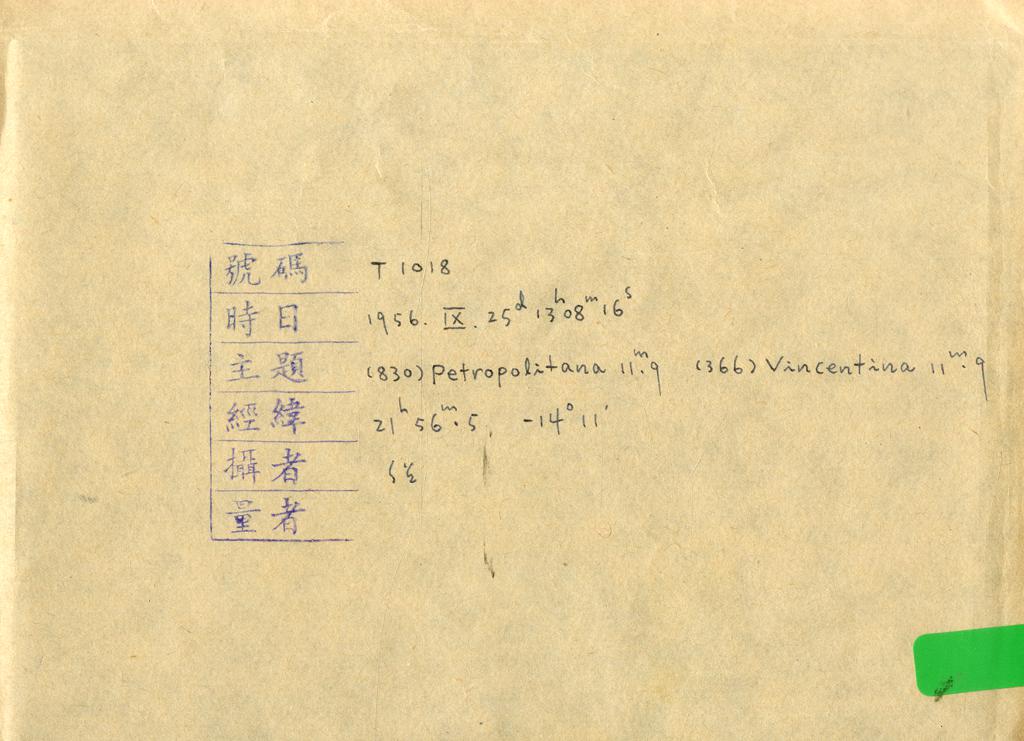 號碼 T 1018
時日 1956. IX. 25ᵈ 13ʰ 08ᵐ 16ˢ
主題 (830) Petropolitana 11ᵐ.9 (366) Vincentina 11ᵐ.9
經緯 21ʰ 56ᵐ.5, -14° 11′
攝者
量者